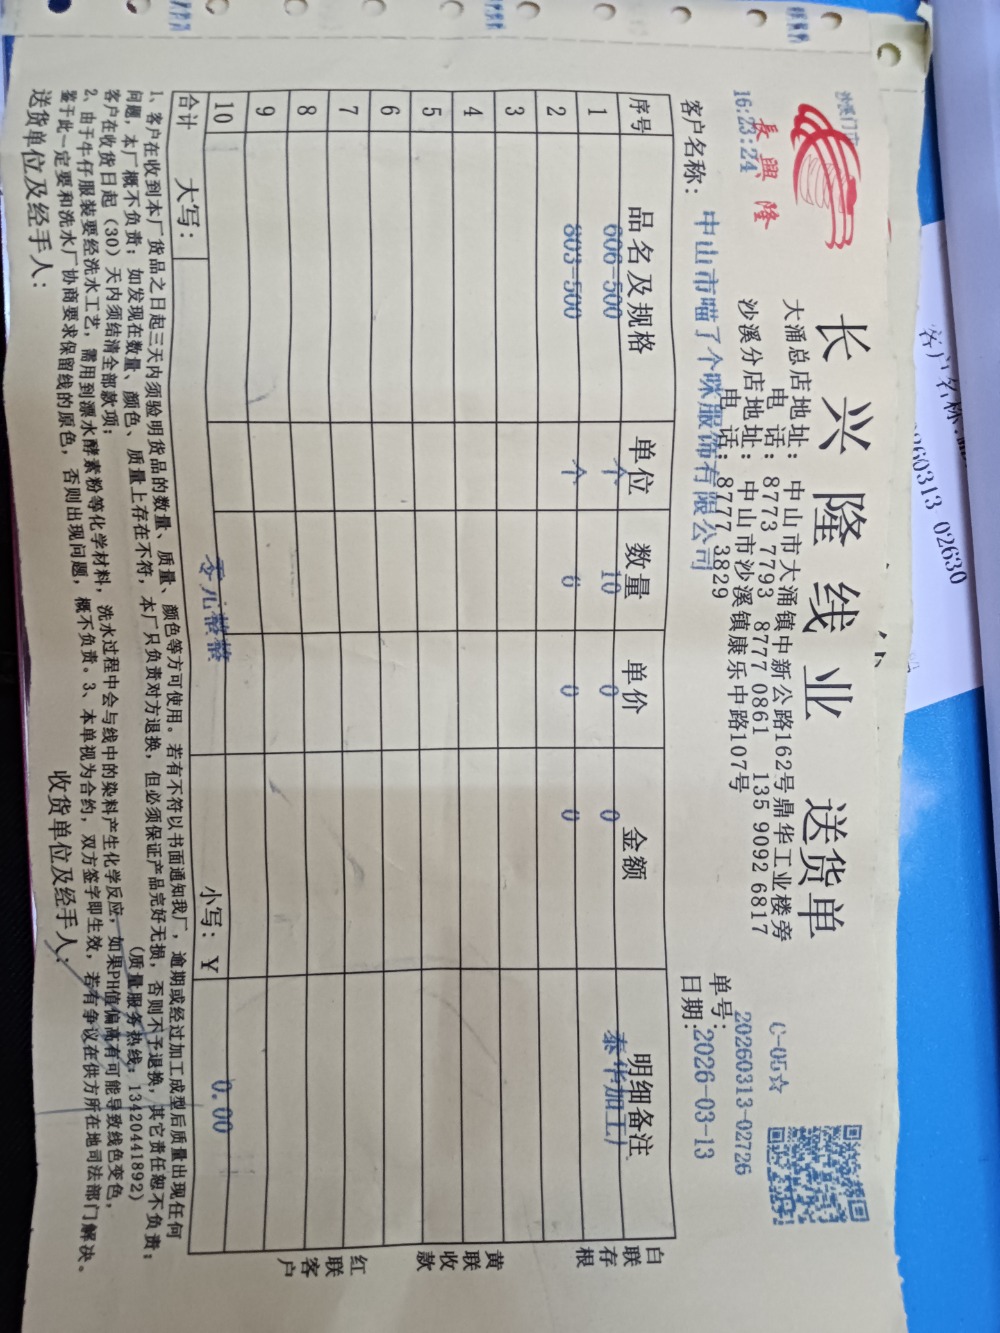 沙溪门
16:23:24
長興隆
长兴隆线业 送货单
大涌总店地址：中山市大涌镇中新公路162号鼎华工业楼旁
电 话：8773 7793 8777 0861 135 9092 6817
沙溪分店地址：中山市沙溪镇康乐中路107号
电 话：8777 3829
C-05☆
单号：20260313-02726
日期：2026-03-13
客户名称：中山市喵了个咪服饰有限公司
序号 品名及规格 单位 数量 单价 金额 明细备注
1 606-500 个 10 0 0 泰华加工厂
2 803-500 个 6 0 0
3
4
5
6
7
8
9
10
合计 大写： 零元整整 小写：￥ 0.00
白联存根
黄联收款
红联客户
1、客户在收到本厂货品之日起三天内须验明货品的数量、质量、颜色等方可使用。若有不符以书面通知我厂，逾期或经过加工成型后质量出现任何
问题，本厂概不负责；如发现在数量、颜色、质量上存在不符，本厂只负责对方退换，但必须保证产品完好无损，否则不予退换，其它责任恕不负责；
客户在收货日起（30）天内须结清全部款项； （质量服务热线：13420441892）
2、由于牛仔服装要经洗水工艺，需用到漂水酵素粉等化学材料，洗水过程中会与线中的染料产生化学反应，如果PH值偏高有可能导致线色变色，
鉴于此一定要和洗水厂协商要求保留线的原色，否则出现问题，概不负责。3、本单视为合约，双方签字即生效，若有争议在供方所在地司法部门解决。
送货单位及经手人： 收货单位及经手人：
客户名称
260313 02630